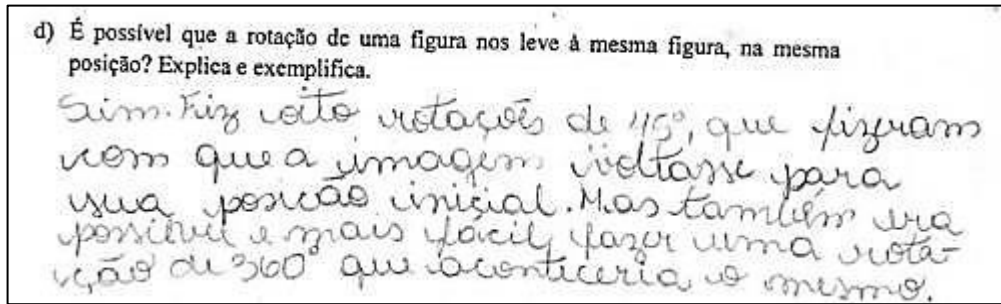 d) É possível que a rotação de uma figura nos leve à mesma figura, na mesma
posição? Explica e exemplifica.
Sim. Fiz oito rotações de 45º, que fizeram
com que a imagem voltasse para
sua posição inicial. Mas também era
possível e mais fácil, fazer uma rota-
ção de 360º que aconteceria o mesmo.